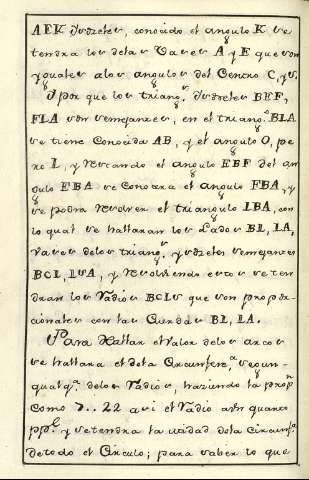 AEK Ysoceles, conocido el angulo K se
tendra los de las Vases A y E que son
yguales a los angulos del Centro C, y S.
Y por que los triang.s Ysoceles BEF,
FLA son semejantes, en el triang.o BLA
se tiene Conocida AB, y el angulo O, pe
ro L, y restando el angulo EBF del an
gulo EBA se Conocera el angulo FBA, y
se podra resolver el triangulo LBA, con
lo qual se hallaran los Lados BL, LA,
Vases de los triang.s ysoceles semejantes
BCL, LSA, y resolviendo estos se ten
dran los Radios BCLS que son propor-
cionales con las Cuerdas BL, LA.
Para Hallar el Valor de los arcos
se hallara el de la Circunfere.a segun
qualq.a de los Radios, haziendo la prop.n
como 7.. 22 asi el Radio a un quarto
pp.l y se tendra la mitad de la Circunf.a
de todo el Circulo; para saber lo que